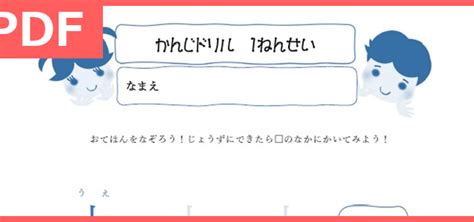 PDF
かんじドリル 1ねんせい
なまえ
おてほんをなぞろう！じょうずにできたら□のなかにかいてみよう！
う え